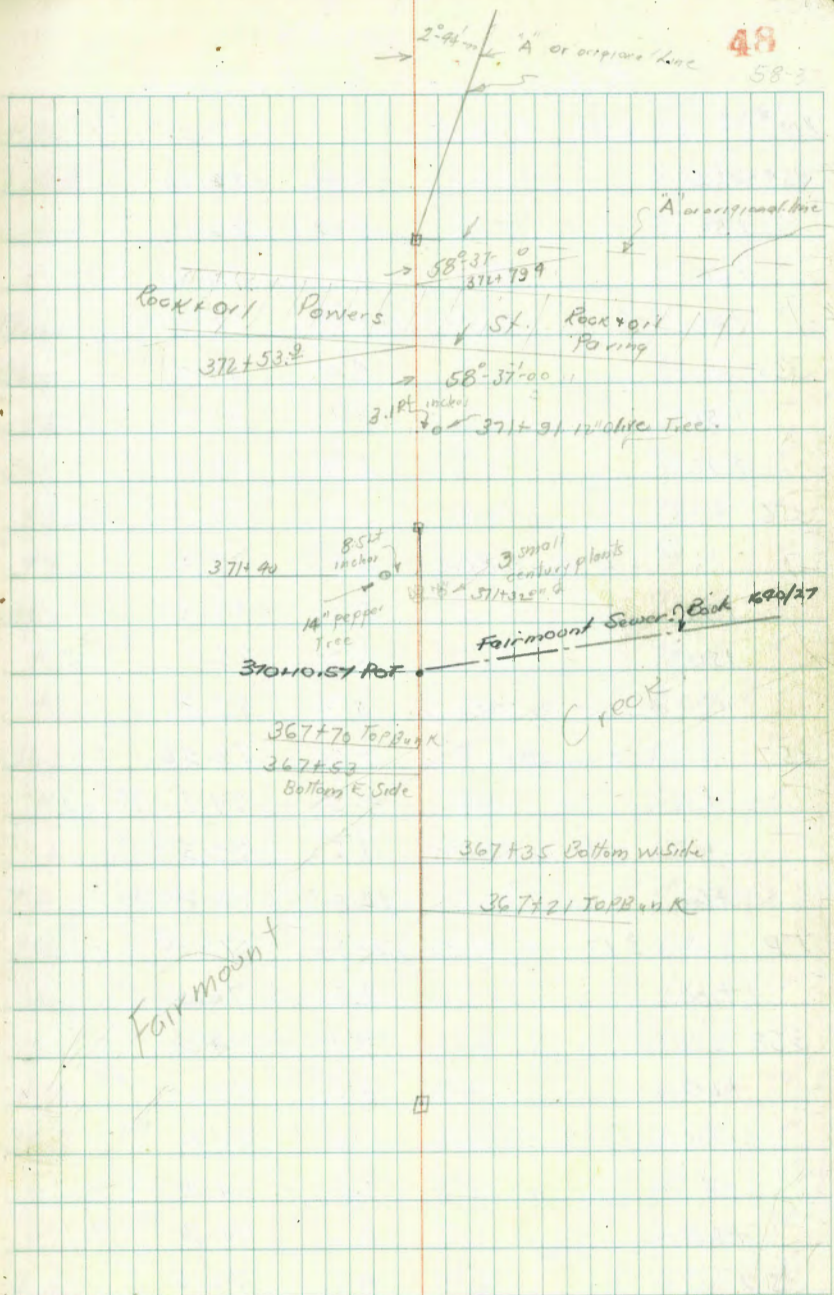 48
2°-44'
"A" or origional Line
58-3
"A" or origional line
58°-37'-0
372+79.4
Rock & oil Powers St. Rock & oil
Paving
372+53.2
58°-37'-00
3.1 Rt inchor
371+91 12" Olive Tree.
8.5 Lt
inchor
371+40
3 small
century plants
14" pepper
Tree
Fairmount Sewer. Book 1690/27
370+10.57 POT
Creek
367+70 TopBank
367+53
Bottom E Side
367+35 Bottom W. Side
367+21 TopBank
Fairmount